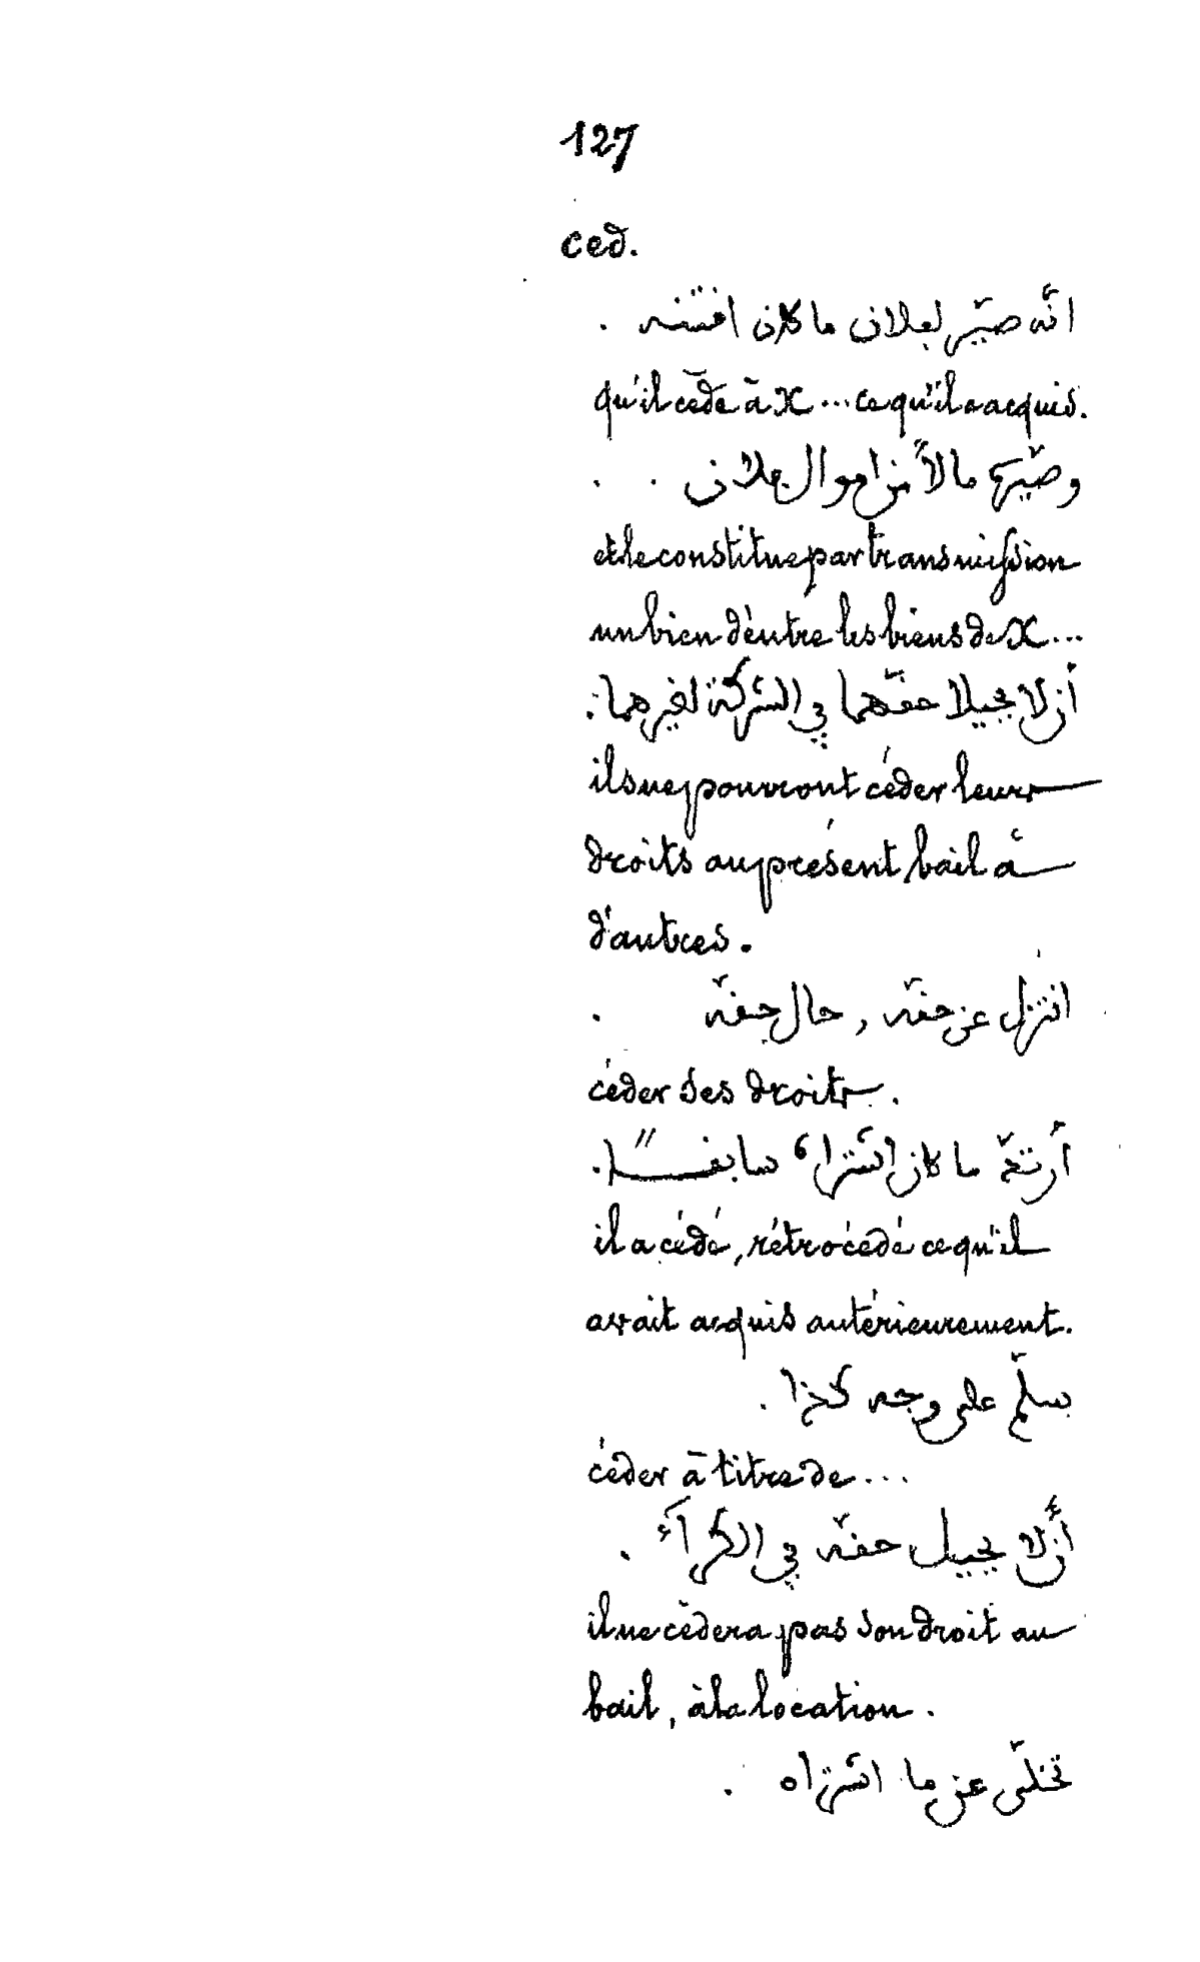 127
ced.
انّه صيّر لفلان ما كان اقتنه .
qu'il cède à X... ce qu'il a acquis.
وصيّرها مالاً من اموال فلان . .
et le constitue par transmission
un bien d'entre les biens de X...
أن لا يحيلا حقّهما في الشركة لغيرهما .
ils ne pourront céder leurs
droits au présent bail à
d'autres.
انتزل عن حقّه , حال حقّه .
céder ses droits.
ما كان اشتراه سابقــاً .
il a cédé, rétrocédé ce qu'il
avait acquis antérieurement.
يسلّم على وجه كذا .
céder à titre de...
أن لا يحيل حقّه في الكرآء .
il ne cèdera pas son droit au
bail, à la location.
تخلّى عن ما اشتراه .